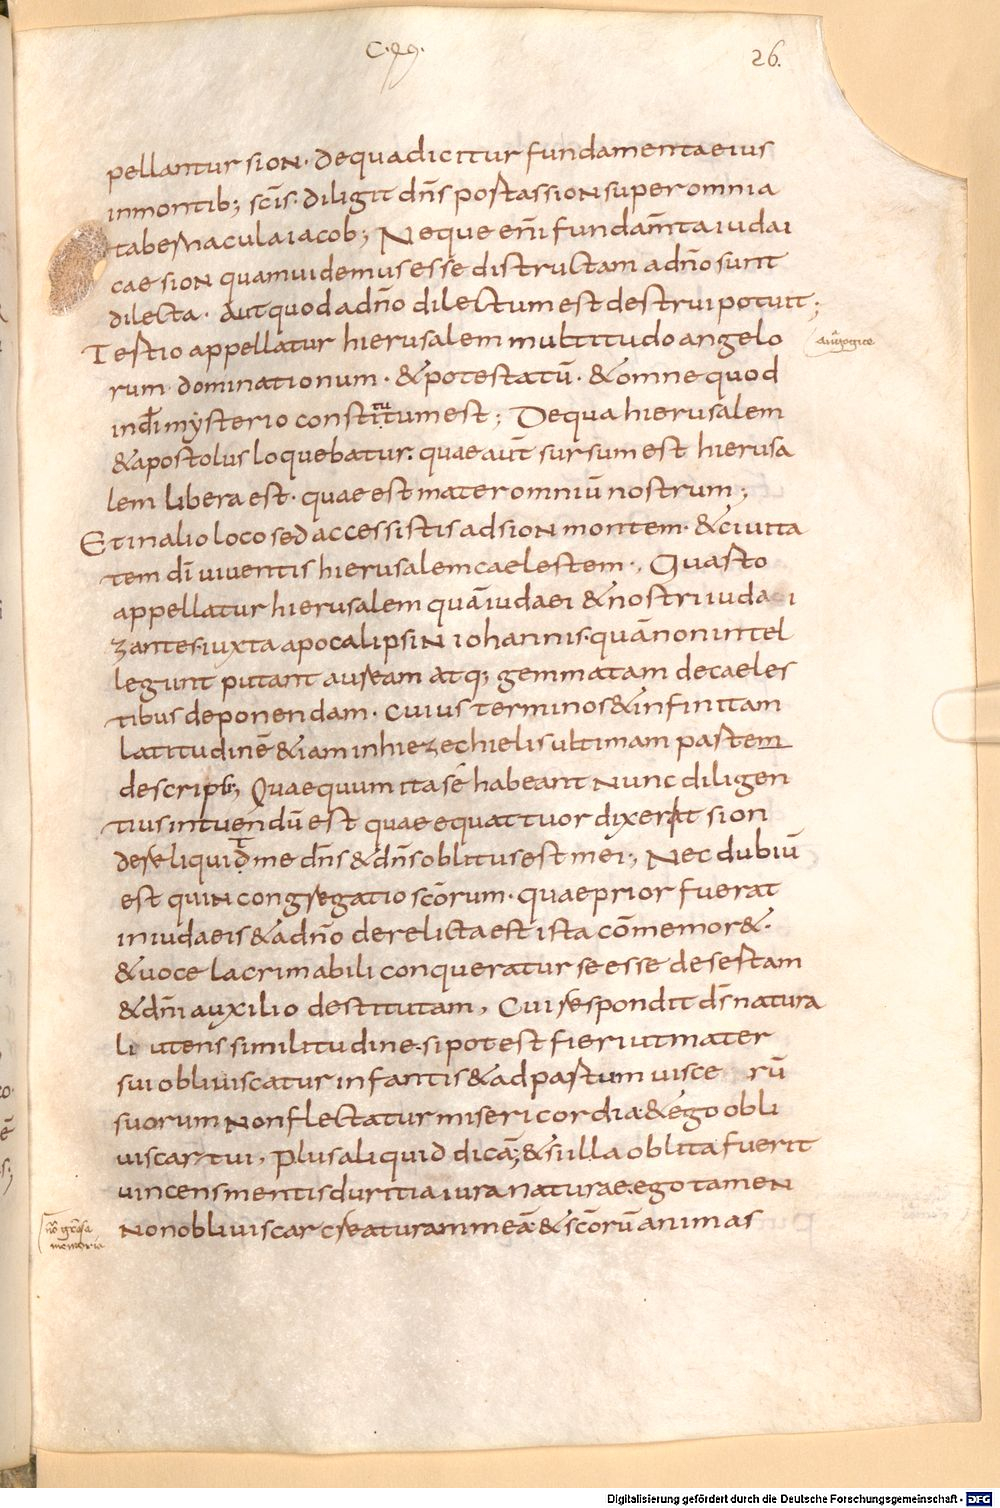 C. 49.
26.
pellantur sion. dequadicitur fundamentaeius
inmontib; sc̄is. diligit dn̄s portassion superomnia
tabernaculaiacob; Neque en̄i fundam̄ta iudai
cae sion quamuidemus esse distructam adn̄o sunt
dilecta. Aut quod adn̄o dilectum est destrui potuit;
Tertio appellatur hierusalem multitudo angelo
anagogice
rum dominationum. & potestatū. & omne quod
indī mysterio constitutum est; Dequa hierusalem
& apostolus loquebatur. quae aūt sursum est hierusa
lem libera est. quae est mater omniū nostrum;
Et in alio loco sed accessistis ad sion montem. & ciuita
tem dī uiuentis hierusalem caelestem., Quarto
appellatur hierusalem quā iudaei & nostri iudai
zantes. iuxta apocalipsin iohannis. quā non intel
legunt putant auream atq; gemmatam decaeles
tibus deponendam. cuius terminos & infinitam
latitudinē & iam in hiezechielis ultimam partem
descripb; Quaequum ita sē habeant Nunc diligen
tius intuendū est quae equattuor dixerit sion
dereliquid me dn̄s & dn̄s oblitus est mei; Nec dubiū
est quin congregatio scōrum. quae prior fuerat
in iudaeis & adn̄o derelicta est ista cōmemor&.
& uoce lacrimabili conqueratur se esse desertam
& dn̄i auxilio destitutam, Cui respondit ds̄ natura
li utens similitudine. si potest fieri ut mater
sui obliuiscatur infantis & ad partum uisce rū
suorum Non flectatur misericordia. & ego obli
uiscar tui, Plus aliquid dicā; & si illa oblita fuerit
uincens mentis duritia iura naturae. ego tamen
Non obliuiscar creaturam meā & scōrū animas
memoria
Digitalisierung gefördert durch die Deutsche Forschungsgemeinschaft - DFG